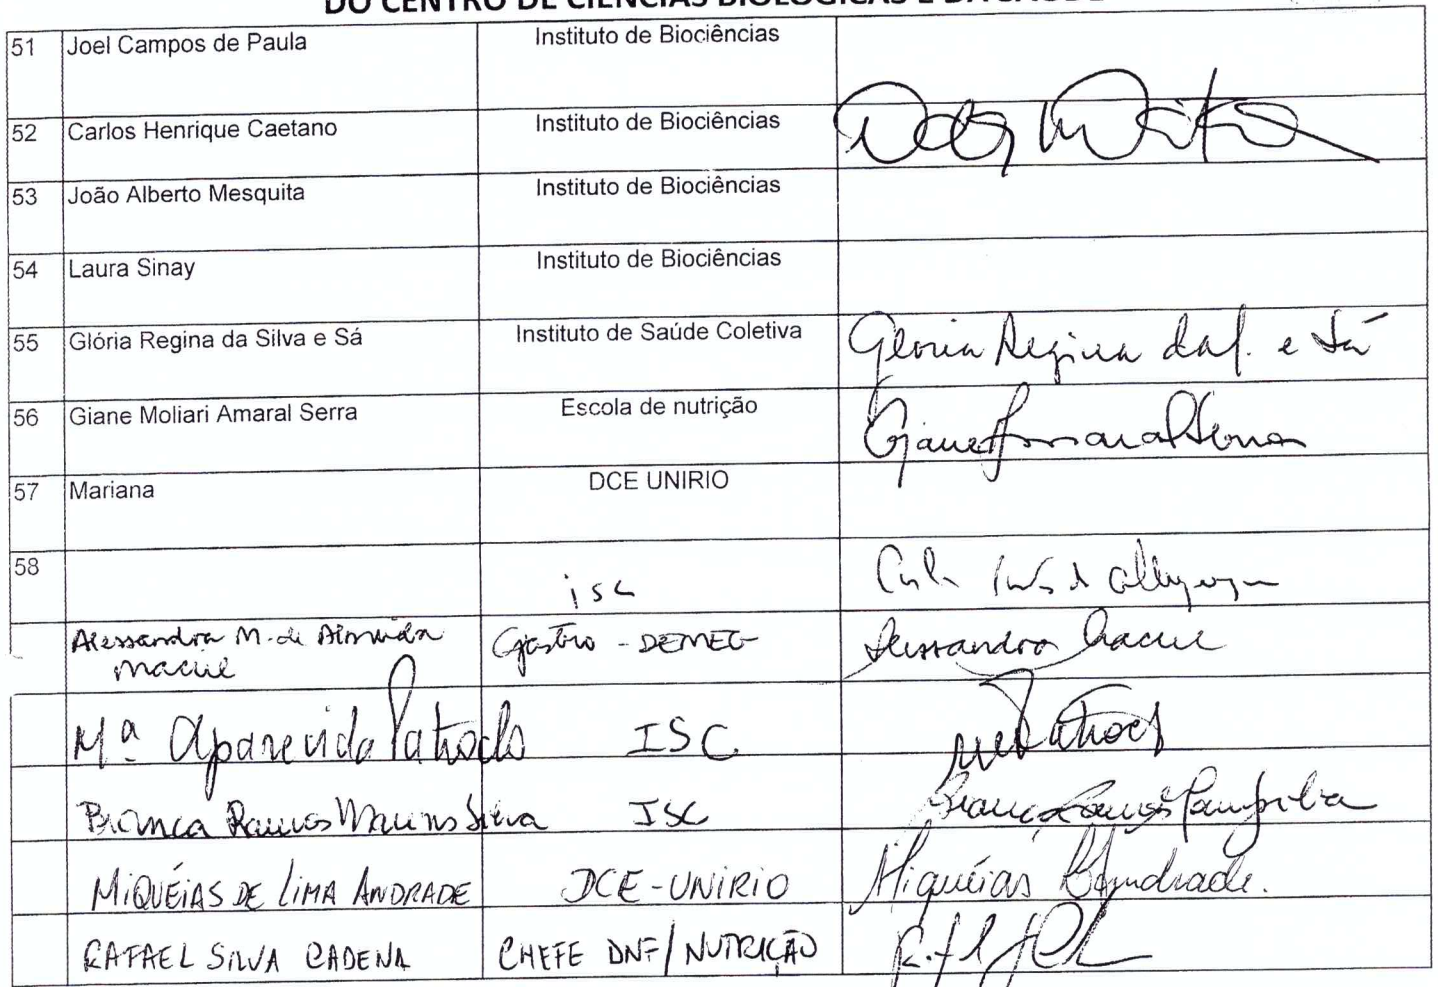 DO CENTRO DE CIÊNCIAS BIOLÓGICAS E DA SAÚDE
51 Joel Campos de Paula Instituto de Biociências
52 Carlos Henrique Caetano Instituto de Biociências
53 João Alberto Mesquita Instituto de Biociências
54 Laura Sinay Instituto de Biociências
55 Glória Regina da Silva e Sá Instituto de Saúde Coletiva Gloria Regina da S. e Sá
56 Giane Moliari Amaral Serra Escola de nutrição Giane Amaral Serra
57 Mariana DCE UNIRIO
58 isc
Alessandra M. de Almeida Gastro - DEMEG Alessandra Maciel
Maciel
Mª Aparecida Patroclo ISC
Bianca Ramos Marins Silva ISC Bianca Ramos
MIQUÉIAS DE LIMA ANDRADE DCE-UNIRIO Miquéias Andrade.
RAFAEL SILVA CADENA CHEFE DNF/NUTRIÇÃO